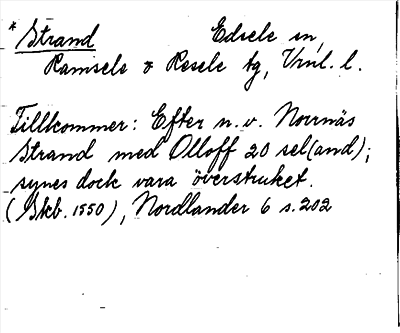 * Strand Edsele sn,
Ramsele & Resele tg, Vrnl. l.
Tillkommer: Efter n. v. Norrnäs
Strand med Olloff 20 sel(and);
synes dock vara överstruket.
(Skb. 1550), Nordlander 6 s. 202